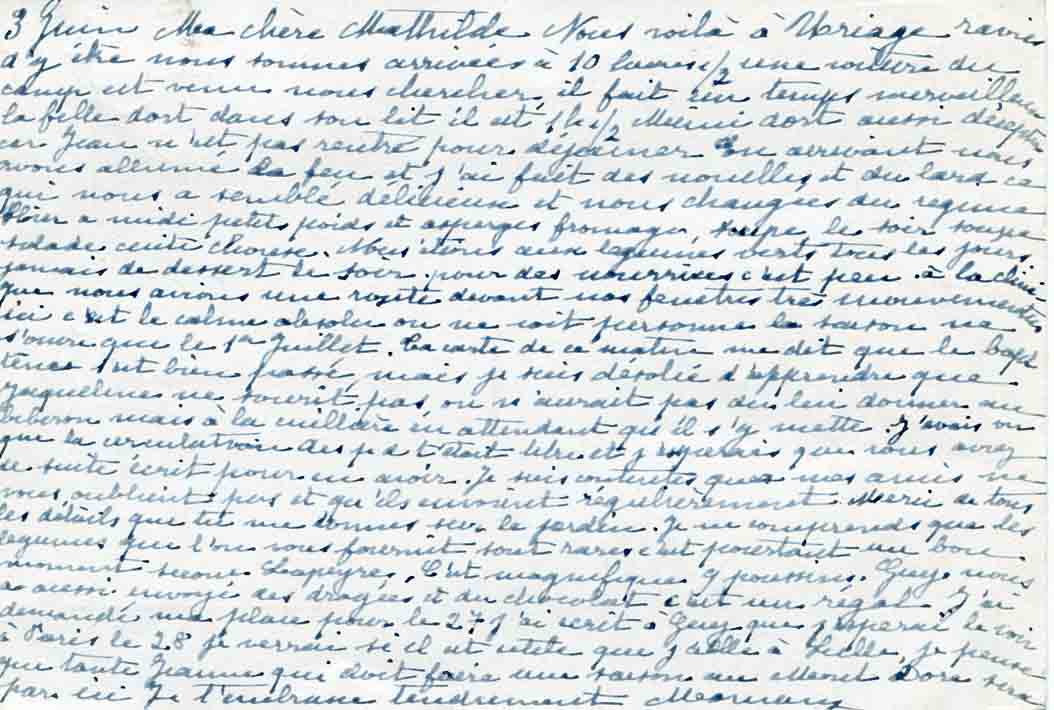 3 Juin Ma chère Mathilde Nous voilà à Uriage ravies
d'y être nous sommes arrivées à 10 heures 1/2 une voiture du
camp est venu nous chercher, il fait un temps merveilleux
la fille dort dans son lit il est 1 h 1/2 Mimi dort aussi déception
car Jean n'est pas rentré pour déjeuner En arrivant nous
avons allumé le feu et j'ai fait des nouilles et du lard ce
qui nous a semblé délicieux et nous changées du régime
Hier a midi petits poids et asperges fromage, soupe, le soir soupe
salade cuite chouse. Nous étions aux legumes verts tous les jours
jamais de dessert le soir. pour des nourrices c'est peu. à la clini
que nous avions une route devant nos fenetres tres mouvementées
ici c'est le calme absolu on ne voit personne la saison ne
s'ouvre que le 1er Juillet. La carte de ce matin me dit que le bap
tême s'est bien passé, mais je suis désolée d'apprendre que
Jaqueline ne sourit pas, on n'aurait pas du lui donner au
biberon mais à la cuillère en attendant qu'il s'y mette. J'avais vu
que la circulation des p d t était libre et j'esperais que vous aviez
de suite écrit pour en avoir. Je suis contente que mes amis ne
vous oublient pas et qu'ils envoient régulièrement. Merci de tous
les détails que tu me donnes sur le jardin. Je ne comprends que les
legumes que l'on vous fournit sont rares c'est pourtant un bon
moment Lapeyre. C'est magnifique 9 poussins. Guy nous
a aussi envoyé des dragées et du chocolat c'est un régal J'ai
demandé ma place pour le 27 j'ai écrit à Guy que j'esperai le voir
à Paris le 28 je verrai si il est utile que j'aille à Lille, je pense
que tante Jeanne qui doit faire une saison au Mont Dore sera
par ici Je t'embrasse tendrement